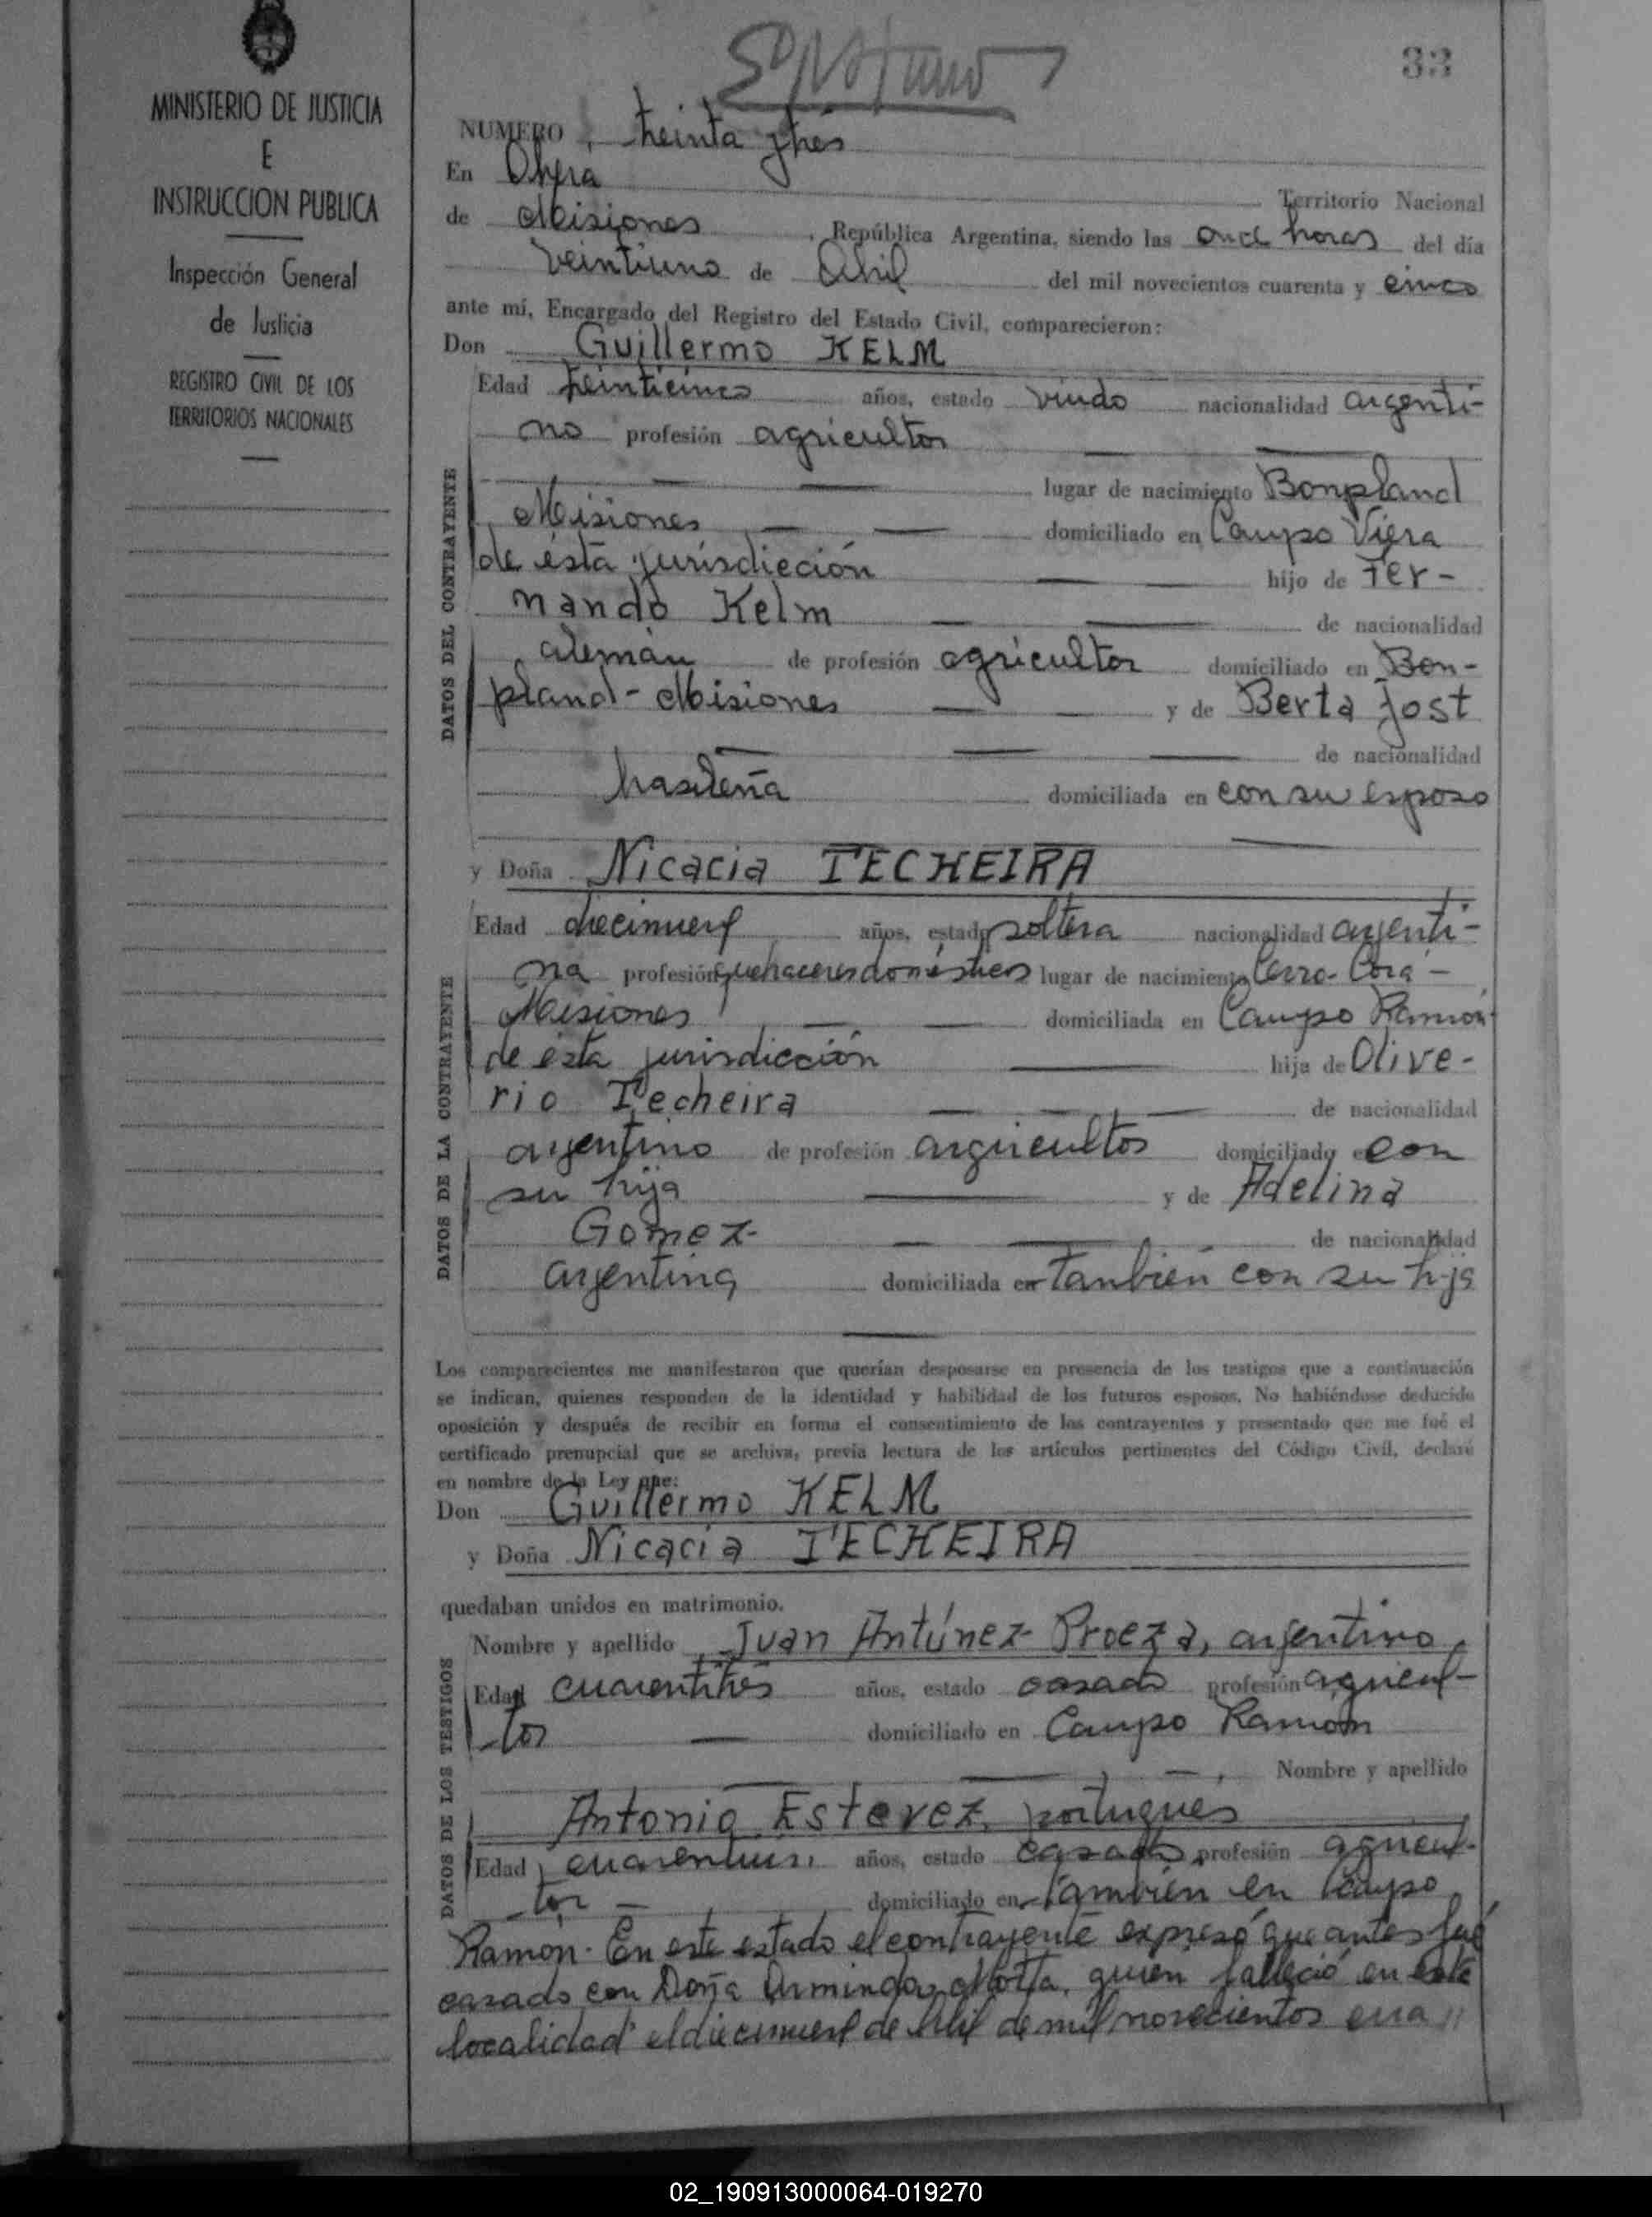 MINISTERIO DE JUSTICIA
E
INSTRUCCION PUBLICA
Inspección General
de Justicia
REGISTRO CIVIL DE LOS
TERRITORIOS NACIONALES
33
NUMERO treinta y tres
En Obera Territorio Nacional
de Misiones, República Argentina, siendo las once horas del día
veintiuno de Abril del mil novecientos cuarenta y cinco
ante mí, Encargado del Registro del Estado Civil, comparecieron:
Don Guillermo KELM
DATOS DEL CONTRAYENTE
Edad veinticinco años, estado viudo nacionalidad argenti-
no profesión agricultor
lugar de nacimiento Bonpland
Misiones domiciliado en Campo Viera
de ésta jurisdicción hijo de Fer-
nando Kelm de nacionalidad
alemán de profesión agricultor domiciliado en Bon-
pland - Misiones y de Berta Jost
de nacionalidad
brasileña domiciliada en con su esposo
y Doña Nicacia TECHEIRA
DATOS DE LA CONTRAYENTE
Edad diecinueve años, estado soltera nacionalidad argenti-
na profesión quehaceres domésticos lugar de nacimiento Cerro-Corá-
Misiones domiciliada en Campo Ramón
de ésta jurisdicción hija de Olive-
rio Techeira de nacionalidad
argentino de profesión argricultor domiciliado en con
su hija y de Adelina
Gomez de nacionalidad
argentina domiciliada en tanbién con su hija
Los comparecientes me manifestaron que querían desposarse en presencia de los testigos que a continuación
se indican, quienes responden de la identidad y habilidad de los futuros esposos. No habiéndose deducido
oposición y después de recibir en forma el consentimiento de los contrayentes y presentado que me fué el
certificado prenupcial que se archiva, previa lectura de los artículos pertinentes del Código Civil, declaré
en nombre de la Ley que:
Don Guillermo KELM
y Doña Nicacia TECHEIRA
quedaban unidos en matrimonio.
DATOS DE LOS TESTIGOS
Nombre y apellido Juan Antúnez Proeza, argentino
Edad cuarentitrés años, estado casado profesión agricul-
tor domiciliado en Campo Ramón
Nombre y apellido
Antonio Estevez, portugues
Edad años, estado casado, profesión agricul-
tor domiciliado en también en Campo
Ramón. En este estado el contrayente expresó que antes fué
casado con Doña Arminda Motta, quien falleció en esta
localidad el diecinueve de Abril de mil novecientos cua//
02_190913000064-019270